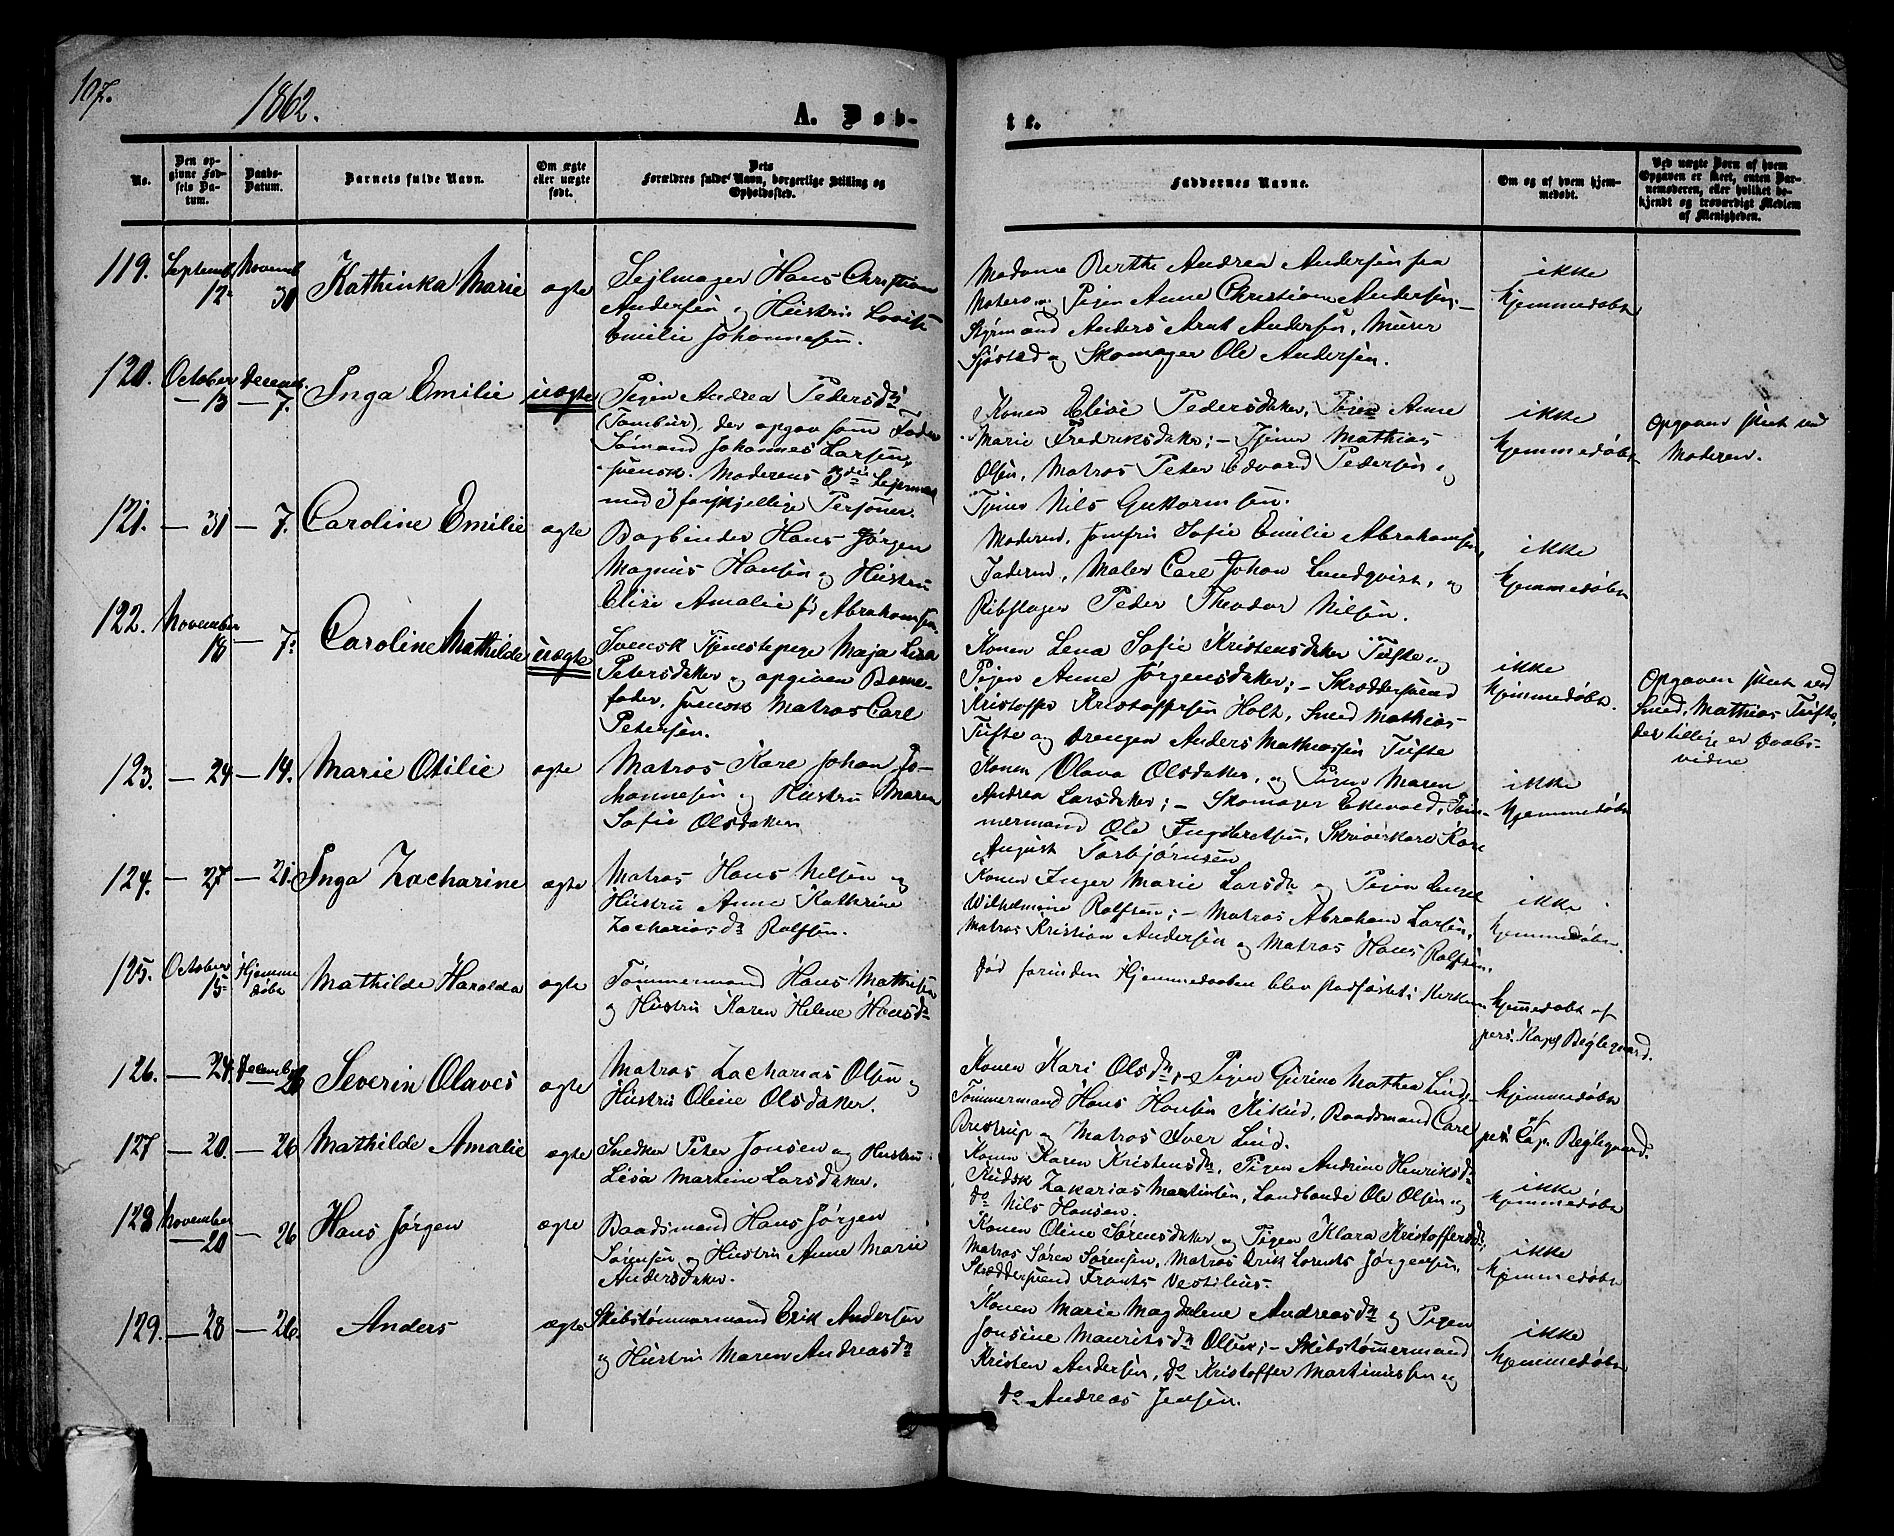 107.
1862.
A. Døb-
te.
No.
Den op-
givne Fød-
sels Da-
tum.
Daabs-
Datum.
Barnets fulde Navn.
Om ægte
eller uægte
født.
Dets
Forældres fulde Navn, borgerlige Stilling og
Opholdssted.
Faddernes Navne.
Om og af hvem hjem-
medøbt.
Ved uægte Børn af hvem
Opgaven er skeet, enten Bar-
nemoderen, eller hvilket be-
kjendt og troværdigt Medlem
af Menigheden.
119.
Septemb.
12.
Novemb.
30
Kathinka Marie
ægte
Sejlmager Hans Christian
Andersen og Hustru Lovise
Emilie Johannesen.
Madame Berthe Andrea Andersen fra
og Pigen Anne Christiane Andersen; —
Styrmand Anders Arnt Andersen, Murer
Sjøstad og Skomager Ole Andersen.
ikke
hjemmedøbt
120.
October
— 13
Decemb.
— 7.
Inga Emilie
uægte
Pigen Andrea Pedersdr
(Tambur), der opgav som Fader
Sømand Johannes Larsen,
svensk. Moderens 3die Lejermaal
med 3 forskjellige Personer.
Konen Elise Pedersdatter, Pigen Anne
Marie Fredriksdatter; — Tjener Mathias
Olsen, Matros Peter Edvard Pedersen og
Tjener Nils Guttormsen.
ikke
hjemmedøbt
Opgaven skeet ved
Moderen.
121.
— 31
— 7.
Caroline Emilie
ægte
Bogbinder Hans Jørgen
Magnus Hansen og Hustru
Elise Amalie fø Abrahamsen.
Moderen, Jomfru Sofie Emilie Abrahamsen,
Faderen, Maler Carl Johan Lundqvist, og
Rebslager Peder Theodor Nilsen.
ikke
hjemmedøbt
122.
November
18
— 7.
Caroline Mathilde
uægte
Svensk Tjenestepige Maja Lisa
Petersdatter og opgiven Barne-
fader, svensk Matros Carl
Petersen.
Konen Lena Sofie Kristensdatter Tufte og
Pigen Anne Jørgensdatter; — Skræddersvend
Kristoffer Kristoffersen Holt, Smed Mathias
Tufte og Drengen Anders Mathiassen Tufte
ikke
hjemmedøbt.
Opgaven skeet ved
Smed, Mathias Tufte,
der tillige er Daabs-
vidne
123.
— 24
— 14.
Marie Otilie
ægte
Matros Karl Johan Jo-
hannesen og Hustru Maren
Sofie Olsdatter
Konen Olava Olsdatter, og Pigen Maren
Andrea Larsdatter; — Skomager Ekevold, Tøm-
mermand Ole Ingebretsen, Skriverkarl Karl
August Torbjørnsen
ikke
hjemmedøbt
124.
— 27
— 21.
Inga Zacharine
ægte
Matros Hans Nilsen og
Hustru Anne Kathrine
Zachariasdr Rolfsen.
Konen Inger Marie Larsdr og Pigen
Wilhelmine Rolfsen; — Matros Abraham Larsen,
Matros Kristian Andersen og Matros Hans Rolfsen.
ikke
hjemmedøbt.
125.
October
15
Hjemme
døbt
Mathilde Haralda
ægte
Tømmermand Hans Mathisen
og Hustru Karen Helene Hansdr
Død forinden Hjemmedaaben blev stadfæstet i Kirken
hjemmedøbt af
pers. Kap. Beglegaard.
126.
— 24.
December
— 26
Severin Olaves
ægte
Matros Zacharias Olsen og
Hustru Oline Olsdatter.
Konen Kari Olsdr, Pigen Gurine Mathea Lind-
Tømmermand Hans Hansen Rikud, Baadsmand Carl
Bristrup og Matros Iver Lind.
hjemmedøbt
af
pers. Cap. Beglegaard.
127
— 20.
— 26
Mathilde Amalie
ægte
Snedker Peter Jonsen og Hustru
Lisa Martine Larsdatter.
Konen Karen Kristensdr, Pigen Andrine Henriksdr
Zakarias Martinsen, Landbonde Ole Olsen og
do Nils Hansen.
ikke
hjemmedøbt
128
November
— 20
— 26
Hans Jørgen
ægte
Baadsmand Hans Jørgen
Sørensen og Hustru Anne Marie
Andersdatter.
Konen Oline Sørensdatter og Pigen Klara Kristoffersdr,
Matros Søren Sørensen, Matros Erik Lorents Jørgensen,
Skræddersvend Frants Vestilius.
ikke
hjemmedøbt
129.
— 28
— 26.
Anders
ægte
Skibstømmermand Erik Andersen
og Hustru Maren Andreasdr
Konen Marie Magdalene Andreasdr og Pigen
Jonsine Mauritsdr Olsen; — Skibstømmermand
Kristen Andersen, do Kristoffer Martinussen og
do Andreas Jensen.
ikke
hjemmedøbt